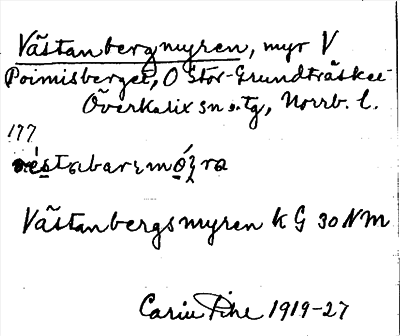 Västanbergmyren, myr V
Poimisberget, O Stor-Grundträsket
Överkalix sn o. tg, Norrb. l.
177
Västanbergsmyren k G 30 NM
Carin Pihl 1919-27